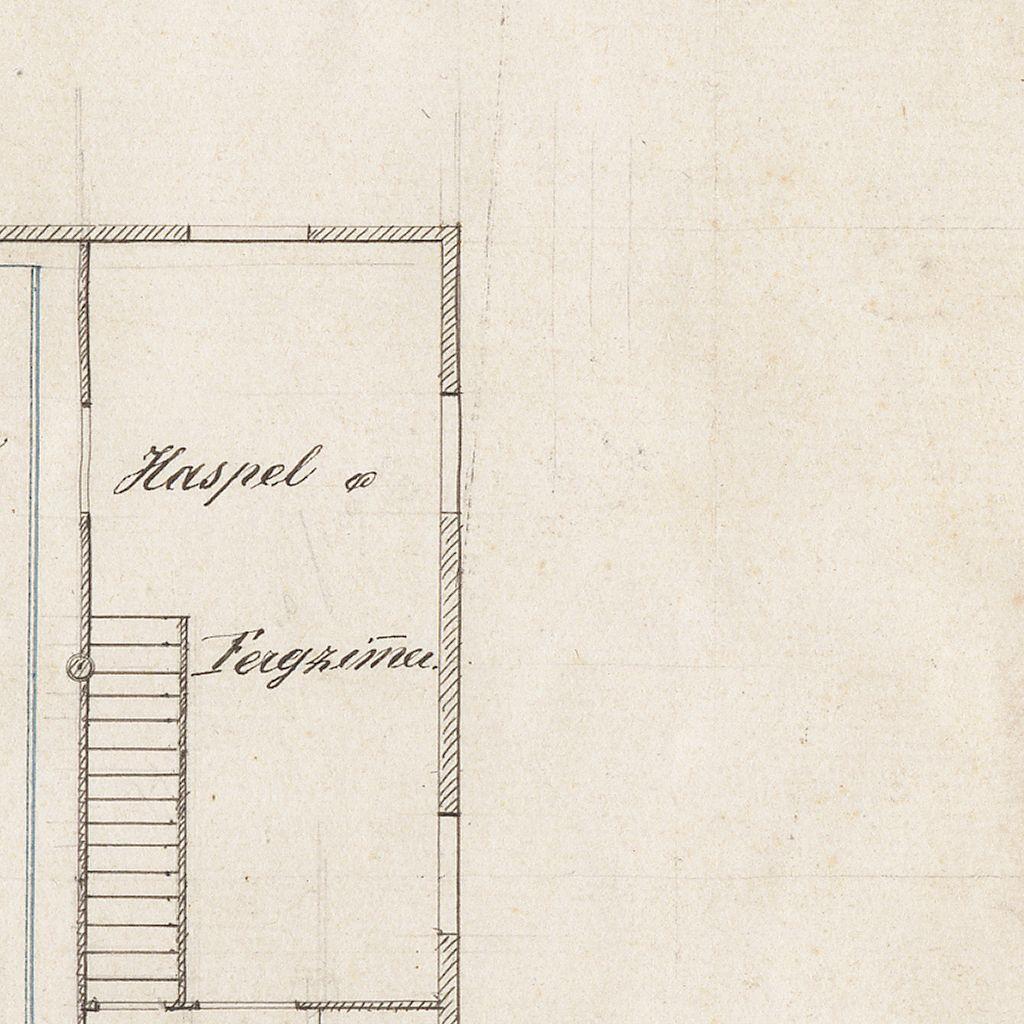 Haspel &
Fergzim̅er.